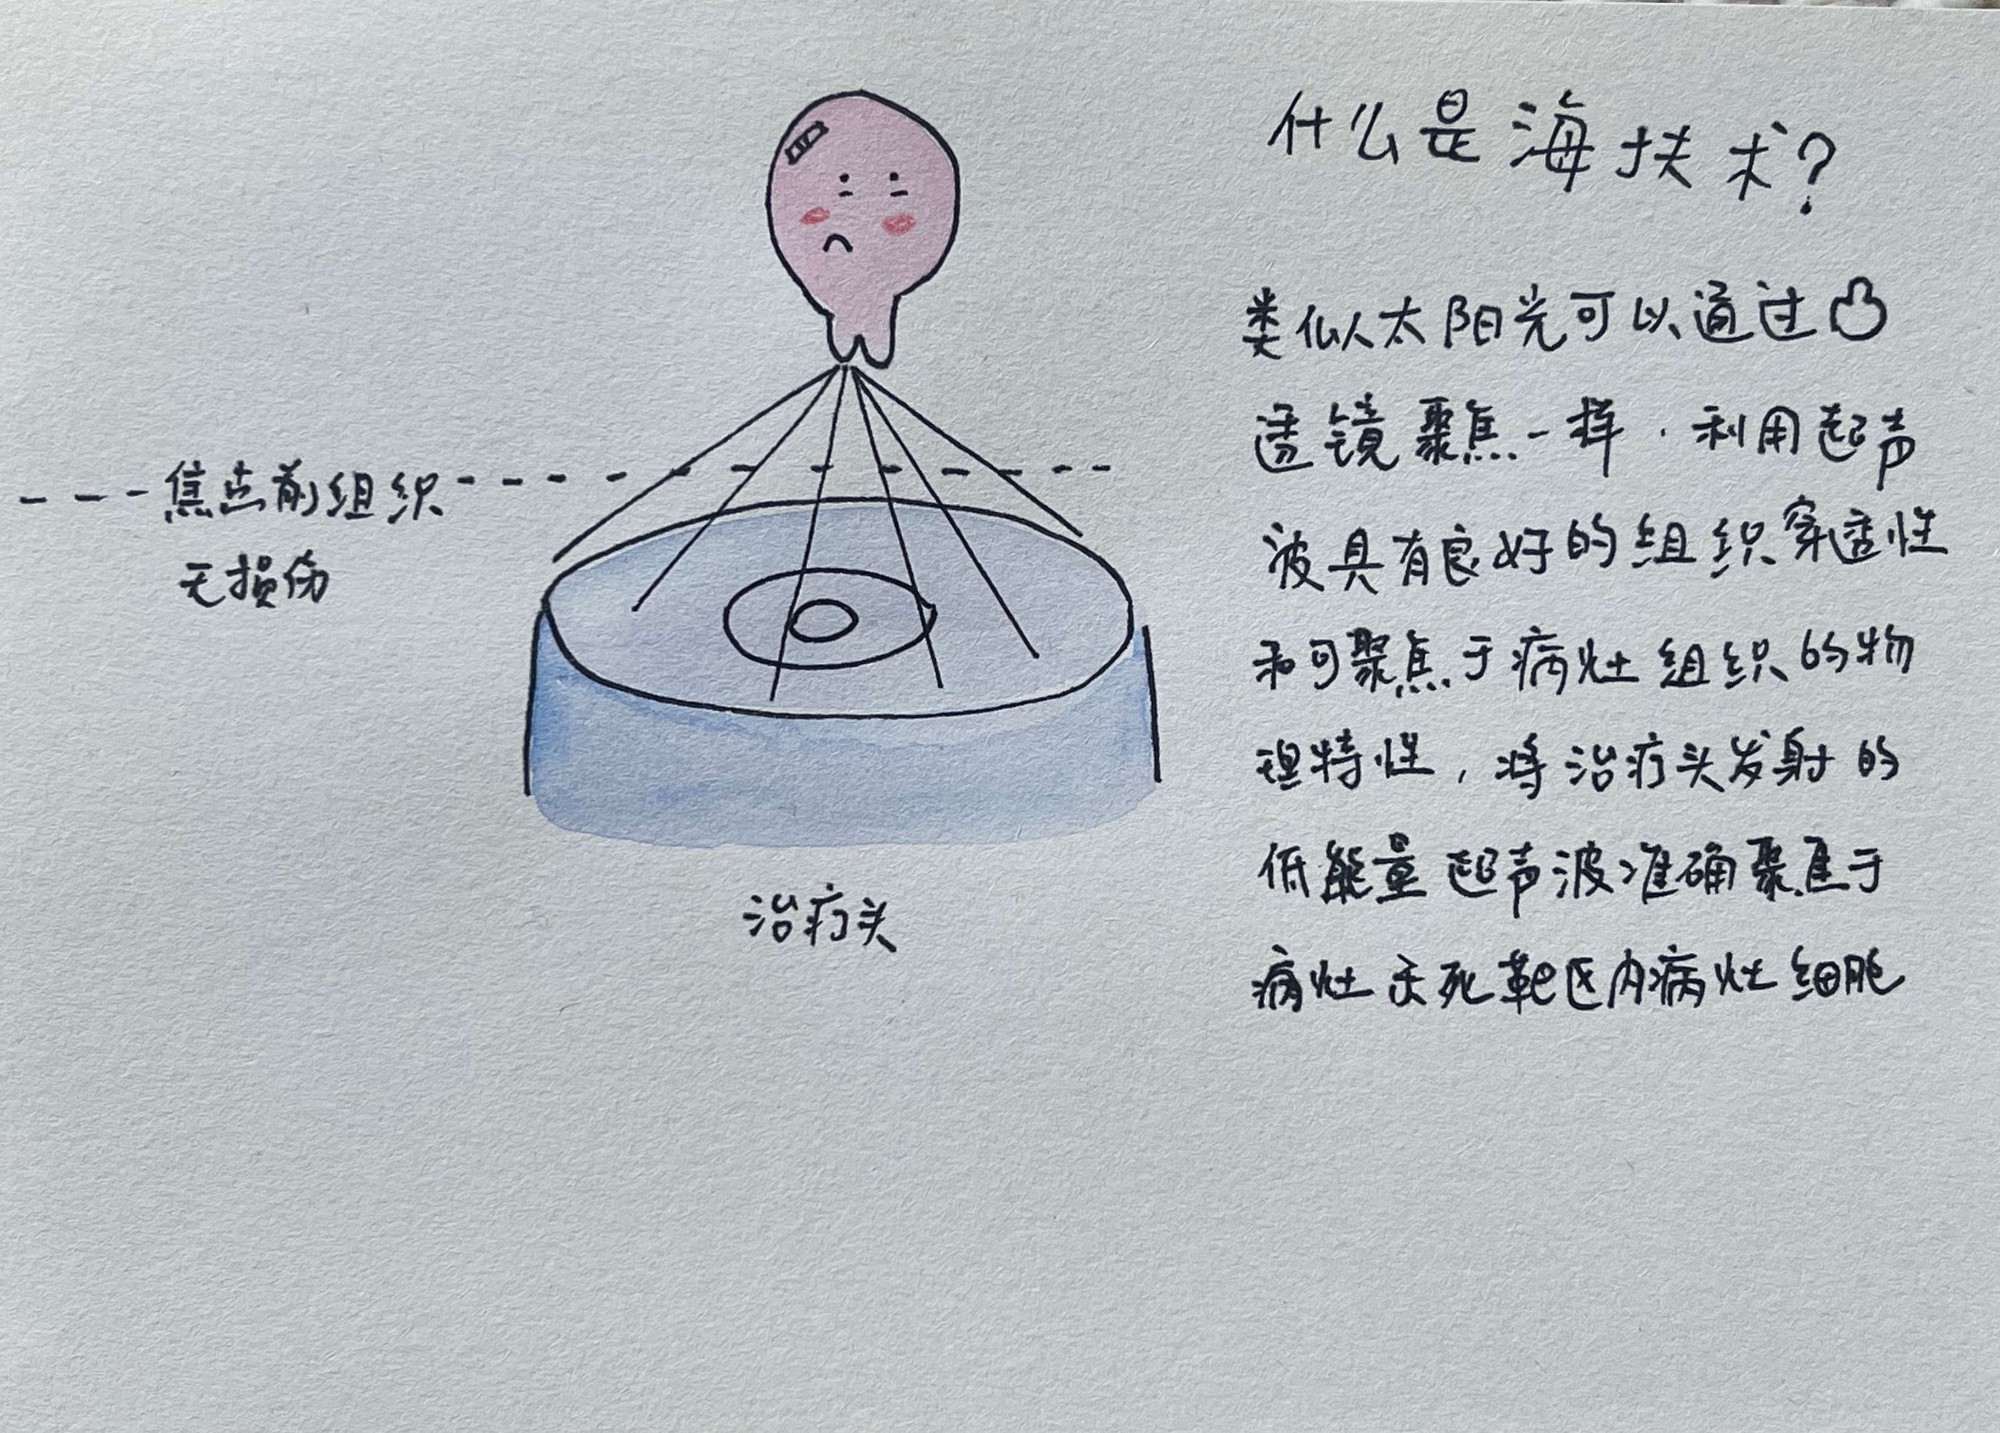 什么是海扶术?
类似太阳光可以通过凸
透镜聚焦一样,利用超声
波具有良好的组织穿透性
和可聚焦于病灶组织的物
理特性,将治疗头发射的
低能量超声波准确聚焦于
病灶 死靶区内病灶细胞
焦点前组织
无损伤
治疗头